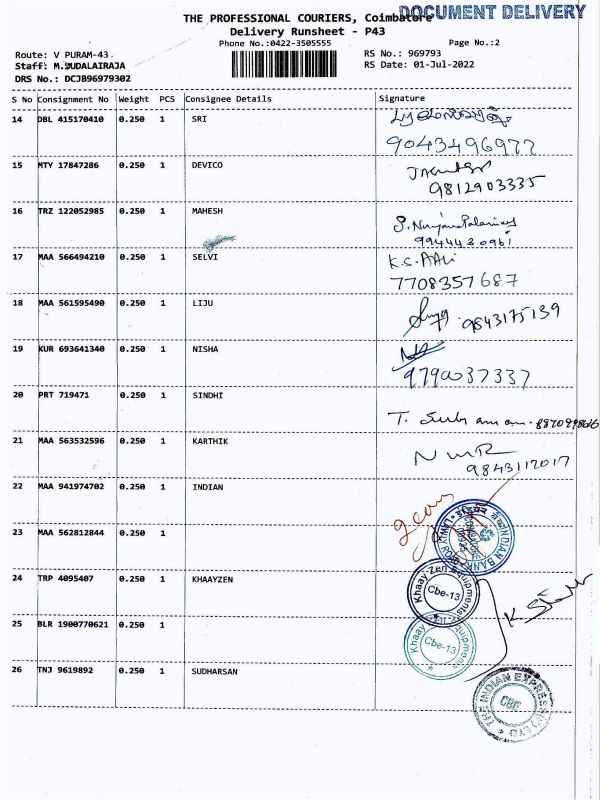 DOCUMENT DELIVERY
THE PROFESSIONAL COURIERS, Coimbatore
Delivery Runsheet - P43
Phone No.:0422-3505555
Page No.:2
Route: V PURAM-43
RS No.: 969793
Staff: M.SUDALAIRAJA
RS Date: 01-Jul-2022
DRS No.: DCJB96979302
S No Consignment No Weight PCS Consignee Details Signature
14 DBL 415170410 0.250 1 SRI
9043496977
15 MTY 17847286 0.250 1 DEVICO
9812903335
16 TRZ 122052985 0.250 1 MAHESH
9944430961
17 MAA 566494210 0.250 1 SELVI
K.S.AALi
7708357687
18 MAA 561595490 0.250 1 LIJU
9843175139
19 KUR 693641340 0.250 1 NISHA
9790037337
20 PRT 719471 0.250 1 SINDHI
T. Subramani
21 MAA 563532596 0.250 1 KARTHIK
9843112017
22 MAA 941974702 0.250 1 INDIAN
23 MAA 562812844 0.250 1
INDIAN BANK
24 TRP 4095407 0.250 1 KHAAYZEN
Khaay-Zen Equipments
Cbe-13
25 BLR 1900770621 0.250 1
Khaay Equipments
Cbe-13
26 TNJ 9619892 0.250 1 SUDHARSAN
THE INDIAN EXPRESS (P) LTD
CBE